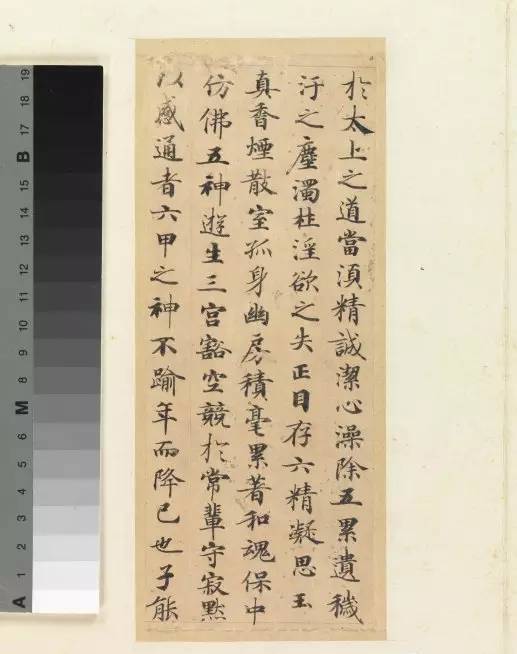 於太上之道當湏精誠潔心澡除五累遺穢
汙之塵濁杜淫欲之失正目存六精凝思玉
真香煙散室孤身幽房積毫累著和魂保中
仿佛五神遊生三宮豁空競於常輩守寂默
以感通者六甲之神不踰年而降已也子能
19
18
17
B
16
15
14
13
12
11
10
9
8
M
7
6
5
4
3
2
1
A